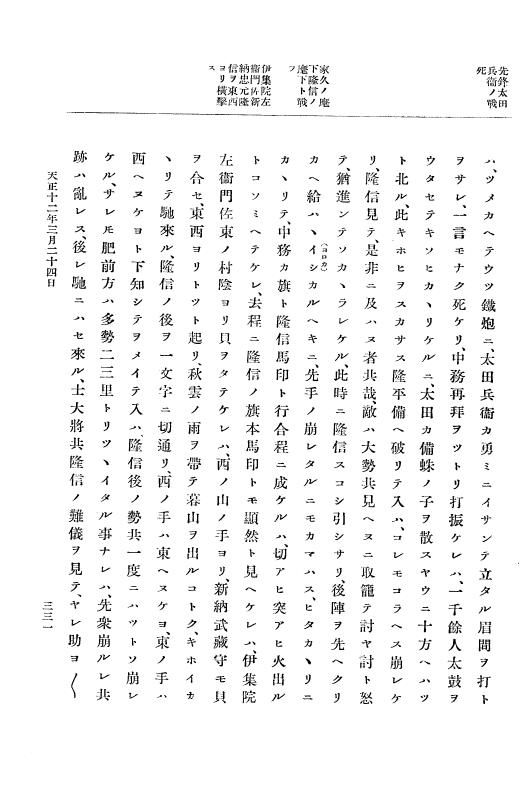 先鋒太田
兵衞ノ戰
死
家久ノ麾
下隆信ノ
麾下ト戰
フ
伊集院左
衞門佐新
納忠元隆
信ヲ東西
ヨリ橫擊
ス
ハ、ツメカヘテウツ鐵炮ニ、太田兵衞カ勇ミニイサンテ立タル眉間ヲ打ト
ヲサレ、一言モナク死ケリ、中務再拜ヲツトリ打振ケレハ、一千餘人太鼓ヲ
ウタセテキソヒカヽリケルニ、太田カ備蛛ノ子ヲ散スヤウニ十方ヘハツ
ト北ル、此キホヒヲスカサス隆平備ヘ破リテ入ハ、コレモコラヘス崩レケ
リ、隆信見テ、是非ニ及ハヌ者共哉、敵ハ大勢共見ヘヌニ取籠テ討ヤ討ト怒
テ、猶進ンテソカヽラレケル、此時ニ隆信スコシ引シサリ、後陣ヲ先ヘクリ
カヘ給ハヽイシカルヘキニ、(ヨロカ)先手ノ崩レタルニモカマハス、ヒタカヽリニ
カヽリテ、中務カ旗ト隆信馬印ト行合程ニ成ケルハ、切アヒ突アヒ火出ル
トコソミヘテケレ、去程ニ隆信ノ旗本馬印トモ顯然ト見ヘケレハ、伊集院
左衞門佐東ノ村陰ヨリ貝ヲタテケレハ、西ノ山ノ手ヨリ、新納武藏守モ貝
ヲ合セ、東西ヨリトツト起リ、秋雲ノ雨ヲ帶テ暮山ヲ出ルコトク、キホイカ
ヽリテ馳來ル、隆信ノ後ヲ一文字ニ切通リ、西ノ手ハ東ヘヌケヨ、東ノ手ハ
西ヘヌケヨト下知シテヲメイテ入ハ、隆信後ノ勢共一度ニハツトソ崩レ
ケル、サレモ肥前方ハ多勢二三里トリツヽイタル事ナレハ、先衆崩ルレ共
跡ハ亂レス、後レ馳ニハセ來ル、士大將共隆信ノ難儀ヲ見テ、ヤレ助ヨ〱
天正十二年三月二十四日
三三一